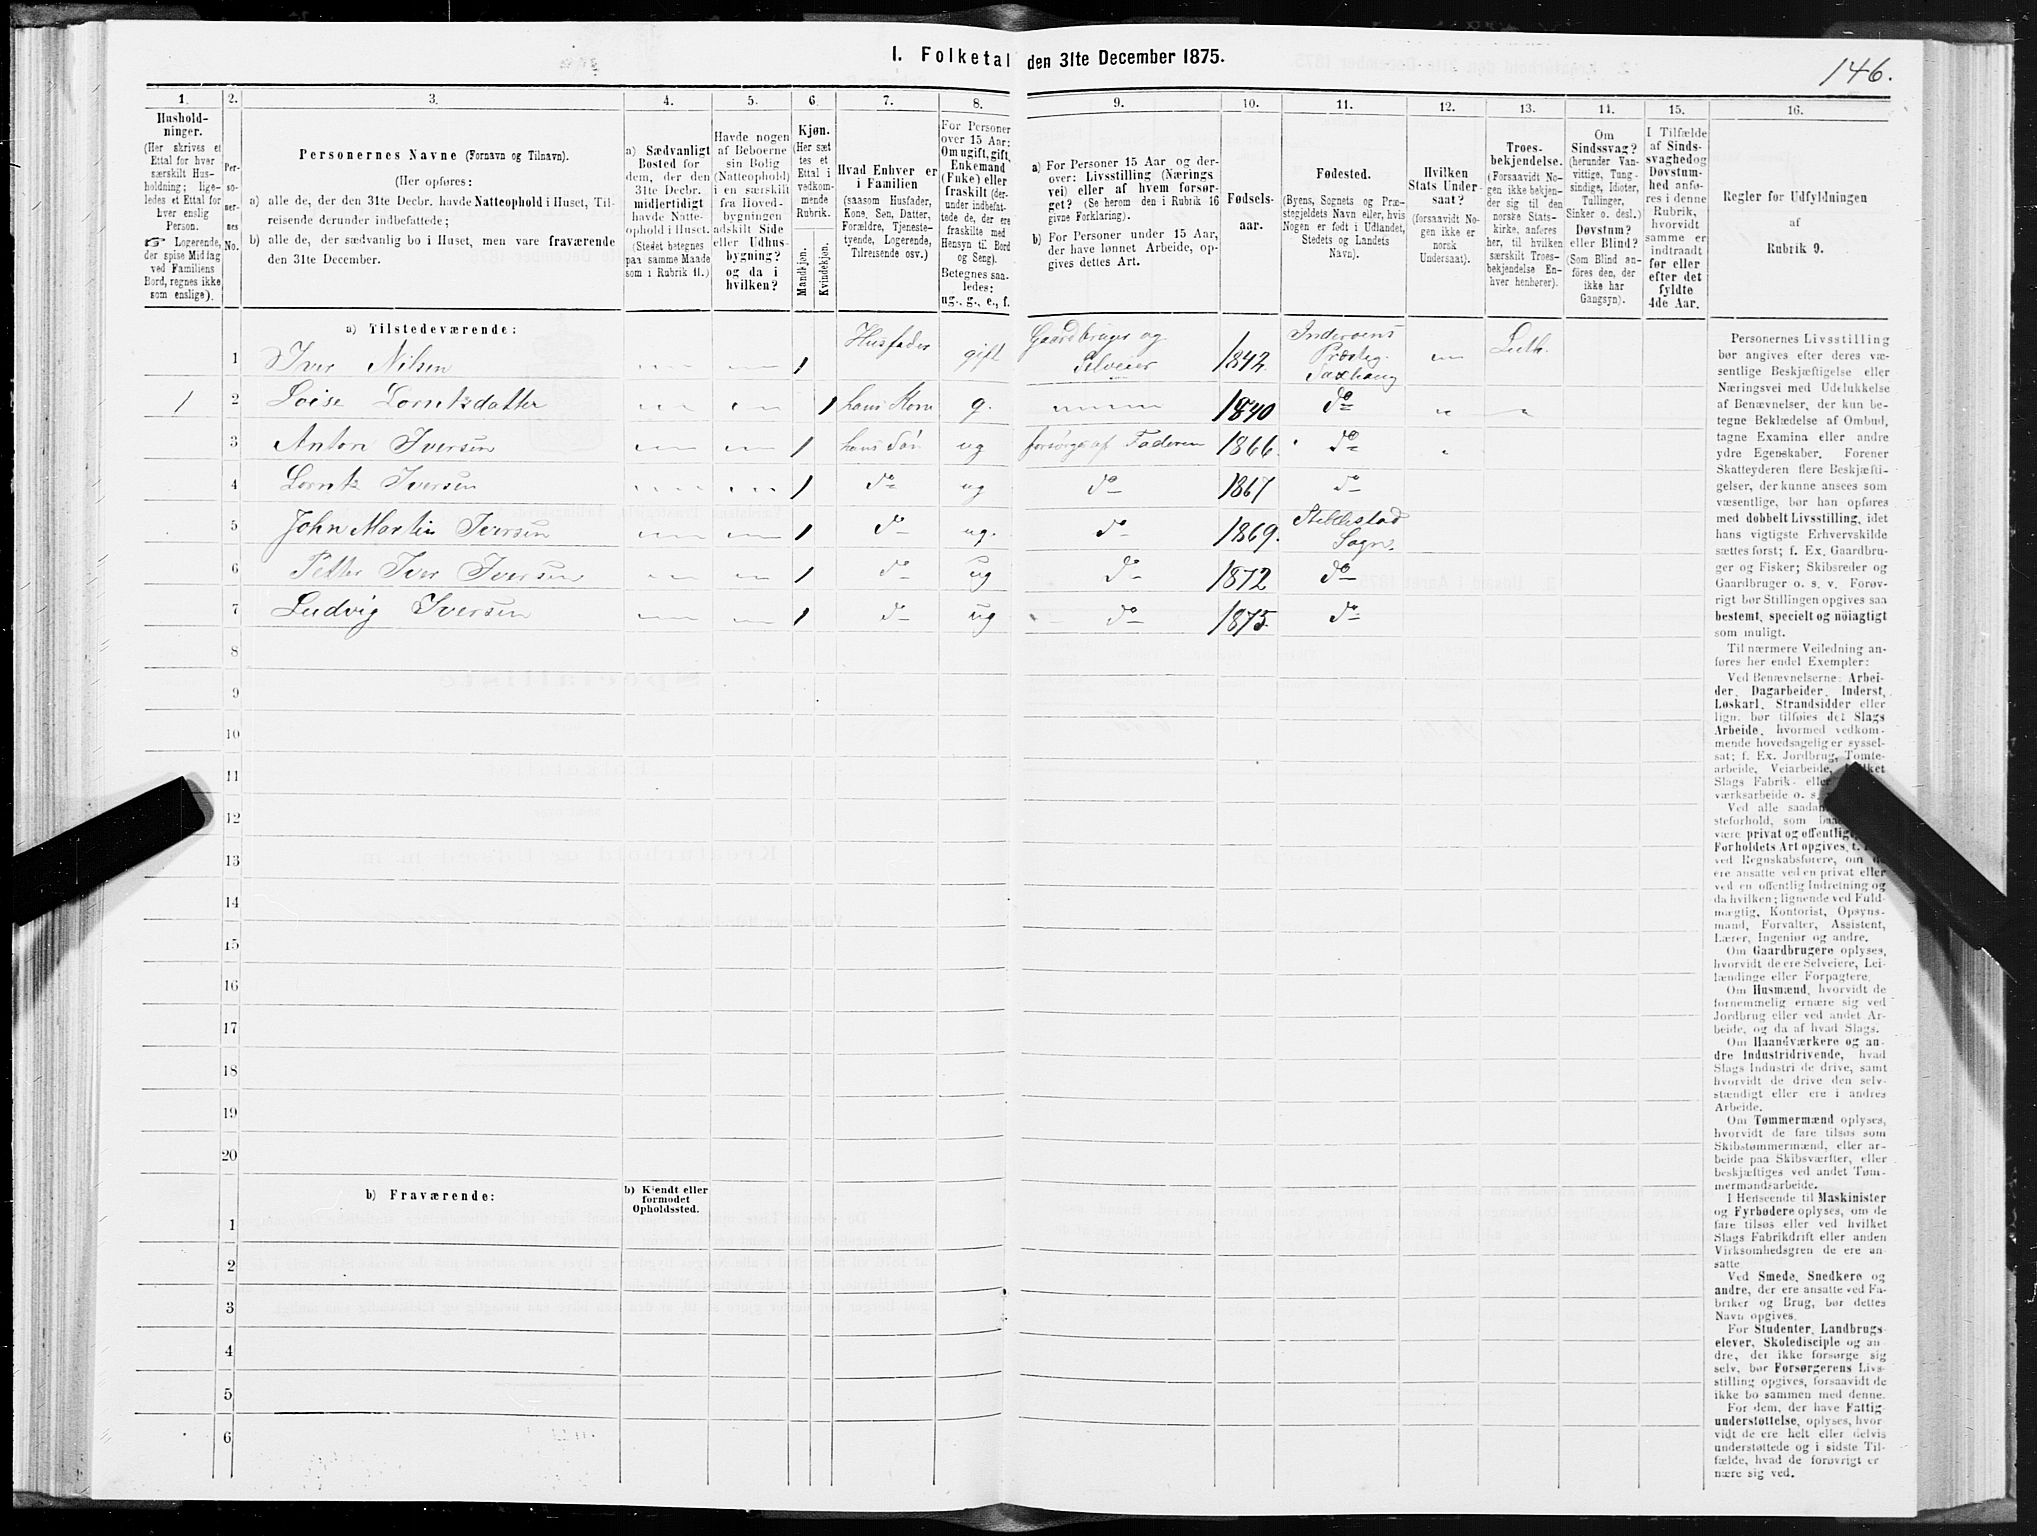 I. Folketal den 31te December 1875.
146.
1. 2. 3. 4. 5. 6. 7. 8. 9. 10. 11. 12. 13. 14. 15. 16.
Hushold-
ninger.
(Her skrives et
Ettal for hver
særskilt Hus-
holdning; lige-
ledes et Ettal for
hver enslig
Person.
☞ Logerende,
der spise Middag
ved Familiens
Bord, regnes ikke
som enslige).
Per-
so-
ner-
nes
No.
Personernes Navne (Fornavn og Tilnavn).
(Her opføres:
a) alle de, der den 31te Decbr. havde Natteophold i Huset, Til-
reisende derunder indbefattede;
b) alle de, der sædvanlig bo i Huset, men vare fraværende
den 31te December.
a) Sædvanligt
Bosted for
dem, der den
31te Decbr.
midlertidigt
havde Natte-
ophold i Huset.
(Stedet betegnes
paa samme Maade
som i Rubrik 11.)
Havde nogen
af Beboerne
sin Bolig
(Natteophold)
i en særskilt
fra Hoved-
bygningen
adskilt Side
eller Udhus-
bygning?
og da i
hvilken?
Kjøn.
(Her sæt
tes et
Ettal i
vedkom-
mende
Rubrik.
Mandkjøn.
Kvindekjøn.
Hvad Enhver er
i Familien
(saasom Husfader,
Kone, Søn, Datter,
Forældre, Tjeneste-
tyende, Logerende,
Tilreisende osv.)
For Personer
over 15 Aar:
Om ugift, gift,
Enkemand
(Enke) eller
fraskilt (der-
under indbefat-
tede de, der ere
fraskilte med
Hensyn til Bord
og Seng).
Betegnes saa-
ledes:
ug., g., e., f.
a) For Personer 15 Aar og der-
over: Livsstilling (Nærings
vei) eller af hvem forsør-
get? (Se herom den i Rubrik 16
givne Forklaring).
b) For Personer under 15 Aar,
der have lønnet Arbeide, op-
gives dettes Art.
Fødsels-
aar.
Fødested.
(Byens, Sognets og Præ-
stegjeldets Navn eller, hvis
Nogen er født i Udlandet,
Stedets og Landets
Navn).
Hvilken
Stats Under-
saat?
(forsaavidt No-
gen ikke er
norsk
Undersaat).
Troes-
bekjendelse.
(Forsaavidt No-
gen ikke bekjen-
der sig til den
norske Stats-
kirke, anføres
her, til hvilken
særskilt Troes-
bekjendelse En-
hver henhører).
Om
Sindssvag?
(herunder Van-
vittige, Tung-
sindige, Idioter,
Tullinger,
Sinker o. desl.)
Døvstum?
eller Blind?
(Som Blind an-
føres den, der
ikke har
Gangsyn).
I Tilfælde
af Sinds-
svaghed og
Døvstum-
hed anfø-
res i denne
Rubrik,
hvorvidt
samme er
indtraadt
før eller
efter det
fyldte
4de Aar.
Regler for Udfyldningen
af
Rubrik 9.
a) Tilstedeværende:
1 Iver Nilsen 1 Husfader gift Gaardbruger og Selveier 1842 Inderøens Præsteg. Saxhaug Luth.
1 2 Loise Lorntzdatter 1 hans Kone g. 1840 do
3 Anton Iversen 1 hans Søn ug forsørges af Faderen 1866. do
4 Lorntz Iversen 1 do ug do 1867 do
5 John Martin Iversen 1 do ug. do 1869. Stiklestad Sogn.
6 Petter Iver Iversen 1 do ug do 1872 do
7 Ludvig Iversen 1 do ug do 1875. do
8
9
10
11
12
13
14
15
16
17
18
19
20
b) Fraværende:
b) Kjendt eller
formodet
Opholdssted.
1
2
3
4
5
6
Personernes Livsstilling
bør angives efter deres væ-
sentlige Beskjæftigelse eller
Næringsvei med Udelukkelse
af Benævnelser, der kun be-
tegne Beklædelse af Ombud,
tagne Examina eller andre
ydre Egenskaber. Forener
Skatteyderen flere Beskjæfti-
gelser, der kunne ansees som
væsentlige, bør han opføres
med dobbelt Livsstilling, idet
hans vigtigste Erhvervskilde
sættes først; f. Ex. Gaardbru-
ger og Fisker; Skibsreder og
Gaardbruger o. s. v. Forøv-
rigt bør Stillingen opgives saa
bestemt, specielt og nøiagtigt
som muligt.
Til nærmere Veiledning an-
føres her endel Exempler:
Ved Benævnelserne: Arbei-
der, Dagarbeider, Inderst,
Løskarl, Strandsidder eller
lign. bør tilføies det Slags
Arbeide, hvormed vedkom-
mende hovedsagelig er syssel-
sat; f. Ex. Jordbrug, Tomte-
arbeide, Veiarbeide,
Slags Fabrik- eller
værksarbeide o. s.
Ved alle
steforhold, som
være privat og offentlig
Forholdets Art opgives,
ved Regnskabsførere, om
ere ansatte ved en privat eller
ved en offentlig Indretning og
da hvilken; lignende ved Fuld-
mægtig, Kontorist, Opsyns-
mand, Forvalter, Assistent,
Lærer, Ingeniør og andre.
Om Gaardbrugere oplyses,
hvorvidt de ere Selveiere, Lei-
lændinge eller Forpagtere.
Om Husmænd, hvorvidt de
fornemmelig ernære sig ved
Jordbrug eller ved andet Ar-
beide, og da af hvad Slags.
Om Haandværkere og an-
dre Industridrivende, hvad
Slags Industri de drive, samt
hvorvidt de drive den selv-
stændigt eller ere i andres
Arbeide.
Om Tømmermænd oplyses,
hvorvidt de fare tilsøs som
Skibstømmermænd, eller ar-
beide paa Skibsværfter, eller
beskjæftiges ved andet Tøm-
mermandsarbeide.
I Henseende til Maskinister
og Fyrbødere oplyses, om de
fare tilsøs eller ved hvilket
Slags Fabrikdrift eller anden
Virksomhedsgren de ere an-
satte
Ved Smede, Snedkere og
andre, der ere ansatte ved Fa-
briker og Brug, bør dettes
Navn opgives.
For Studenter, Landbrugs-
elever, Skoledisciple og an-
dre, der ikke forsørge sig
selv, bør Forsørgerens Livs-
stilling opgives, forsaavidt de
ikke bo sammen med denne.
For dem, der have Fattig-
understøttelse, oplyses, hvor-
vidt de ere helt eller delvis
understøttede og i sidste Til-
fælde, hvad de forøvrigt er-
nære sig ved.